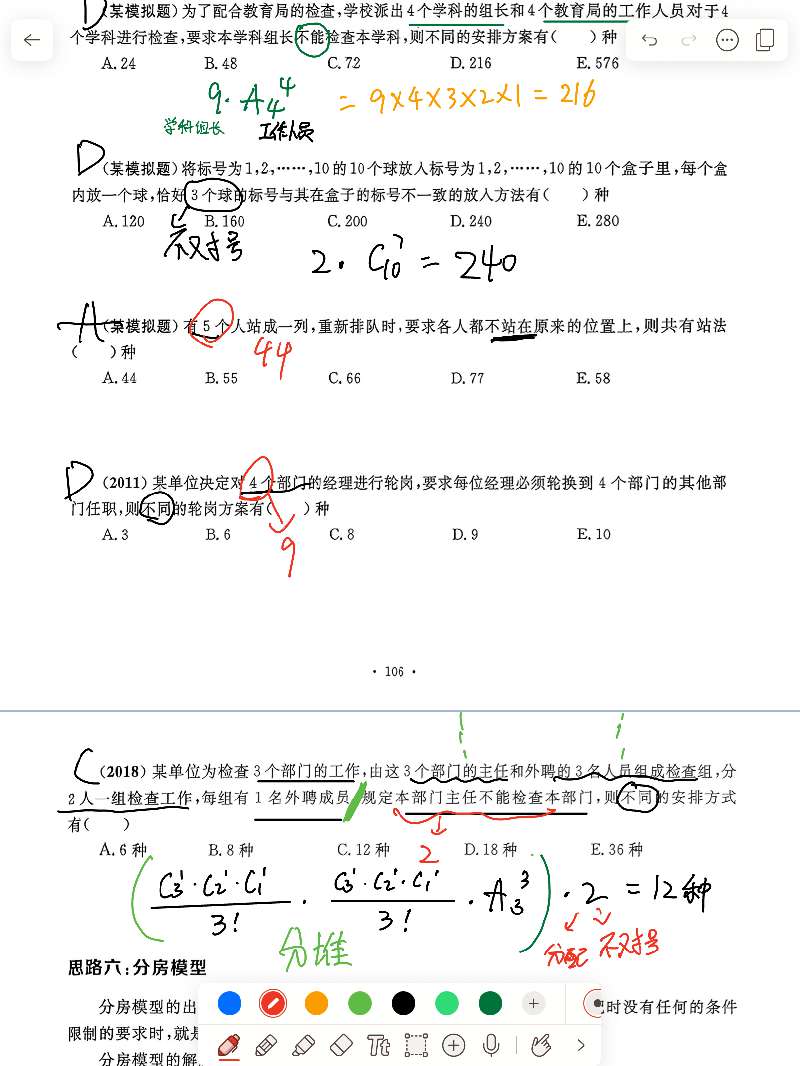 D
(某模拟题)为了配合教育局的检查,学校派出4个学科的组长和4个教育局的工作人员对于4
个学科进行检查,要求本学科组长不能检查本学科,则不同的安排方案有(  )种
A. 24  B. 48  C. 72  D. 216  E. 576
9·A₄⁴ = 9×4×3×2×1 = 216
学科组长 工作人员
D
(某模拟题)将标号为1,2,……,10的10个球放入标号为1,2,……,10的10个盒子里,每个盒
内放一个球,恰好3个球的标号与其在盒子的标号不一致的放入方法有(  )种
A. 120  B. 160  C. 200  D. 240  E. 280
不对号
2·C₁₀⁷ = 240
A
(某模拟题)有5个人站成一列,重新排队时,要求各人都不站在原来的位置上,则共有站法
(  )种
44
A. 44  B. 55  C. 66  D. 77  E. 58
D
(2011)某单位决定对4个部门的经理进行轮岗,要求每位经理必须轮换到4个部门的其他部
门任职,则不同的轮岗方案有(  )种
A. 3  B. 6  C. 8  D. 9  E. 10
9
· 106 ·
C
(2018)某单位为检查3个部门的工作,由这3个部门的主任和外聘的3名人员组成检查组,分
2人一组检查工作,每组有1名外聘成员,规定本部门主任不能检查本部门,则不同的安排方式
有(  )
A. 6种  B. 8种  C. 12种  D. 18种  E. 36种
2
(C₃¹·C₂¹·C₁¹/3! · C₃¹·C₂¹·C₁¹/3! · A₃³)·2 = 12种
分堆
分配 不对号
思路六:分房模型
分房模型的出
时没有任何的条件
限制的要求时,就是
分房模型的解
Tt